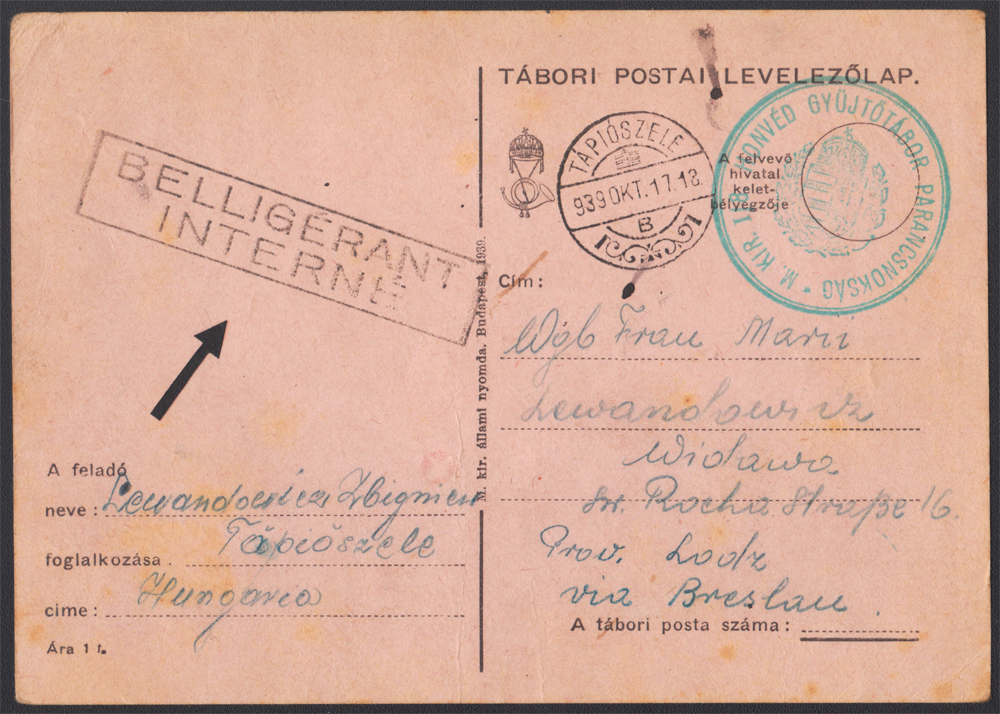 TÁBORI POSTAI LEVELEZŐLAP.
BELLIGÉRANT
INTERNÉ
TÁPIÓSZELE
939 OKT. 17. 18.
B
A felvevő
hivatal
kelet-
bélyegzője
M. KIR. HONVÉD GYÜJTŐTÁBOR PARANCSNOKSÁG
Cím:
Wgb Frau Marii
Lewandowicz
Widawa
Św. Rocha Straße 16.
Prov. Lodz
via Breslau
A tábori posta száma:
M. kir. állami nyomda. Budapest, 1939.
A feladó
neve: Lewandowicz Zbigniew
Tápiószele
foglalkozása.
Hungaria
cime:
Ára 1 f.